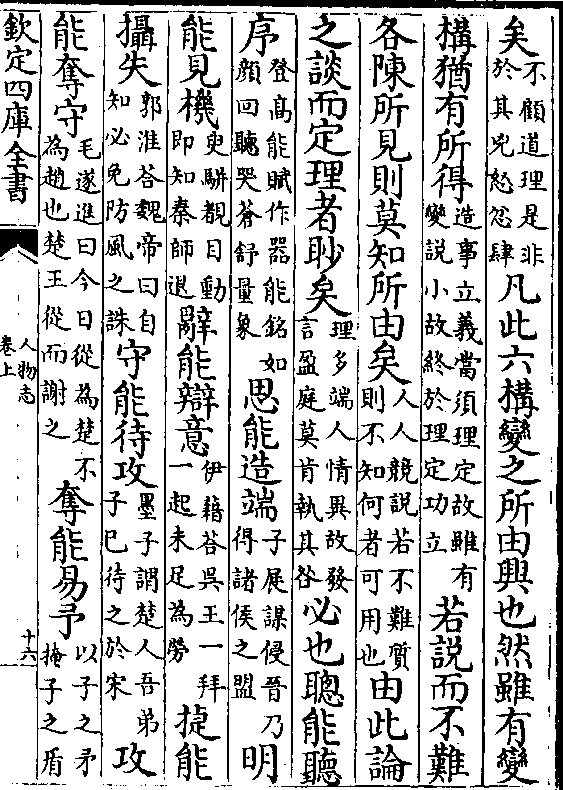 矣不顧道理是非於其兇怒忿肆凡此六構變之所由興也然雖有變
構猶有所得造事立義當須理定故雖有變說小故終於理定功立若說而不難
各陳所見則莫知所由矣人人競說若不難質則不知何者可用也由此論
之談而定理者眇矣理多端人情異故發言盈庭莫肯執其咎必也聰能聽
序登髙能賦作器能銘如顔回聽哭蒼舒量象思能造端子展謀侵晉乃得諸侯之盟明
能見機臾駢覩目動即知秦師退辭能辯意伊藉荅吳王一拜一起未足為勞捷能
攝失郭淮荅魏帝曰自知必免防風之誅守能待攻墨子謂楚人吾弟子已待之於宋攻
能奪守毛遂進曰今日從為楚不為趙也楚王從而謝之奪能易予以子之矛掩子之盾
欽定四庫全書
人物志
卷上
十六